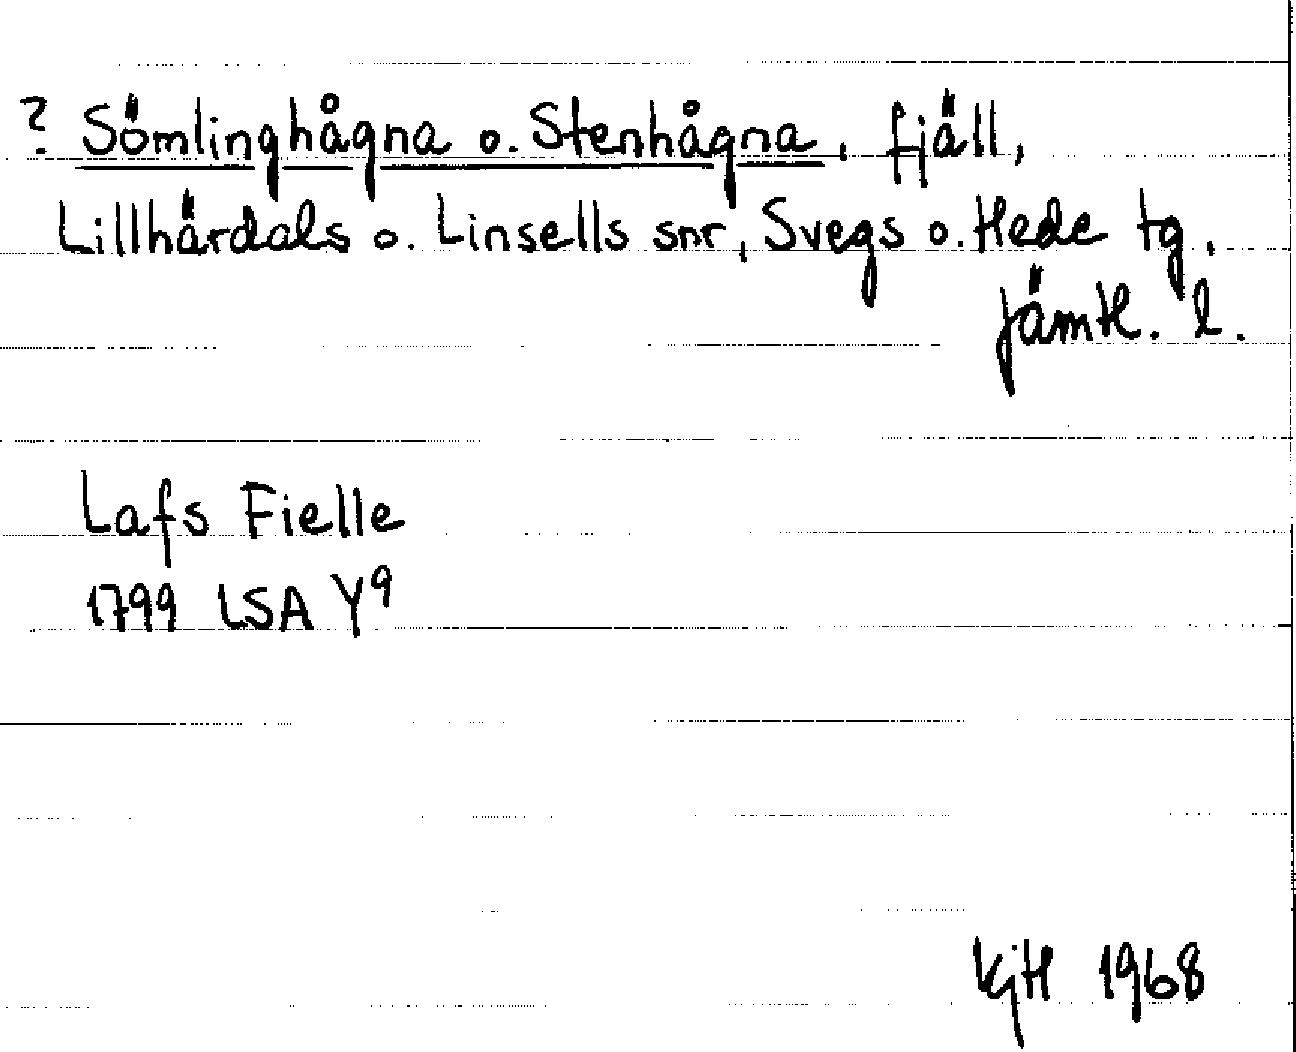 ? Sömlinghågna o. Stenhågna, fjäll,
Lillhärdals o. Linsells snr, Svegs o. Hede tg,
Jämtl. l.
Lafs Fielle
1799 LSA Y9
KjH 1968